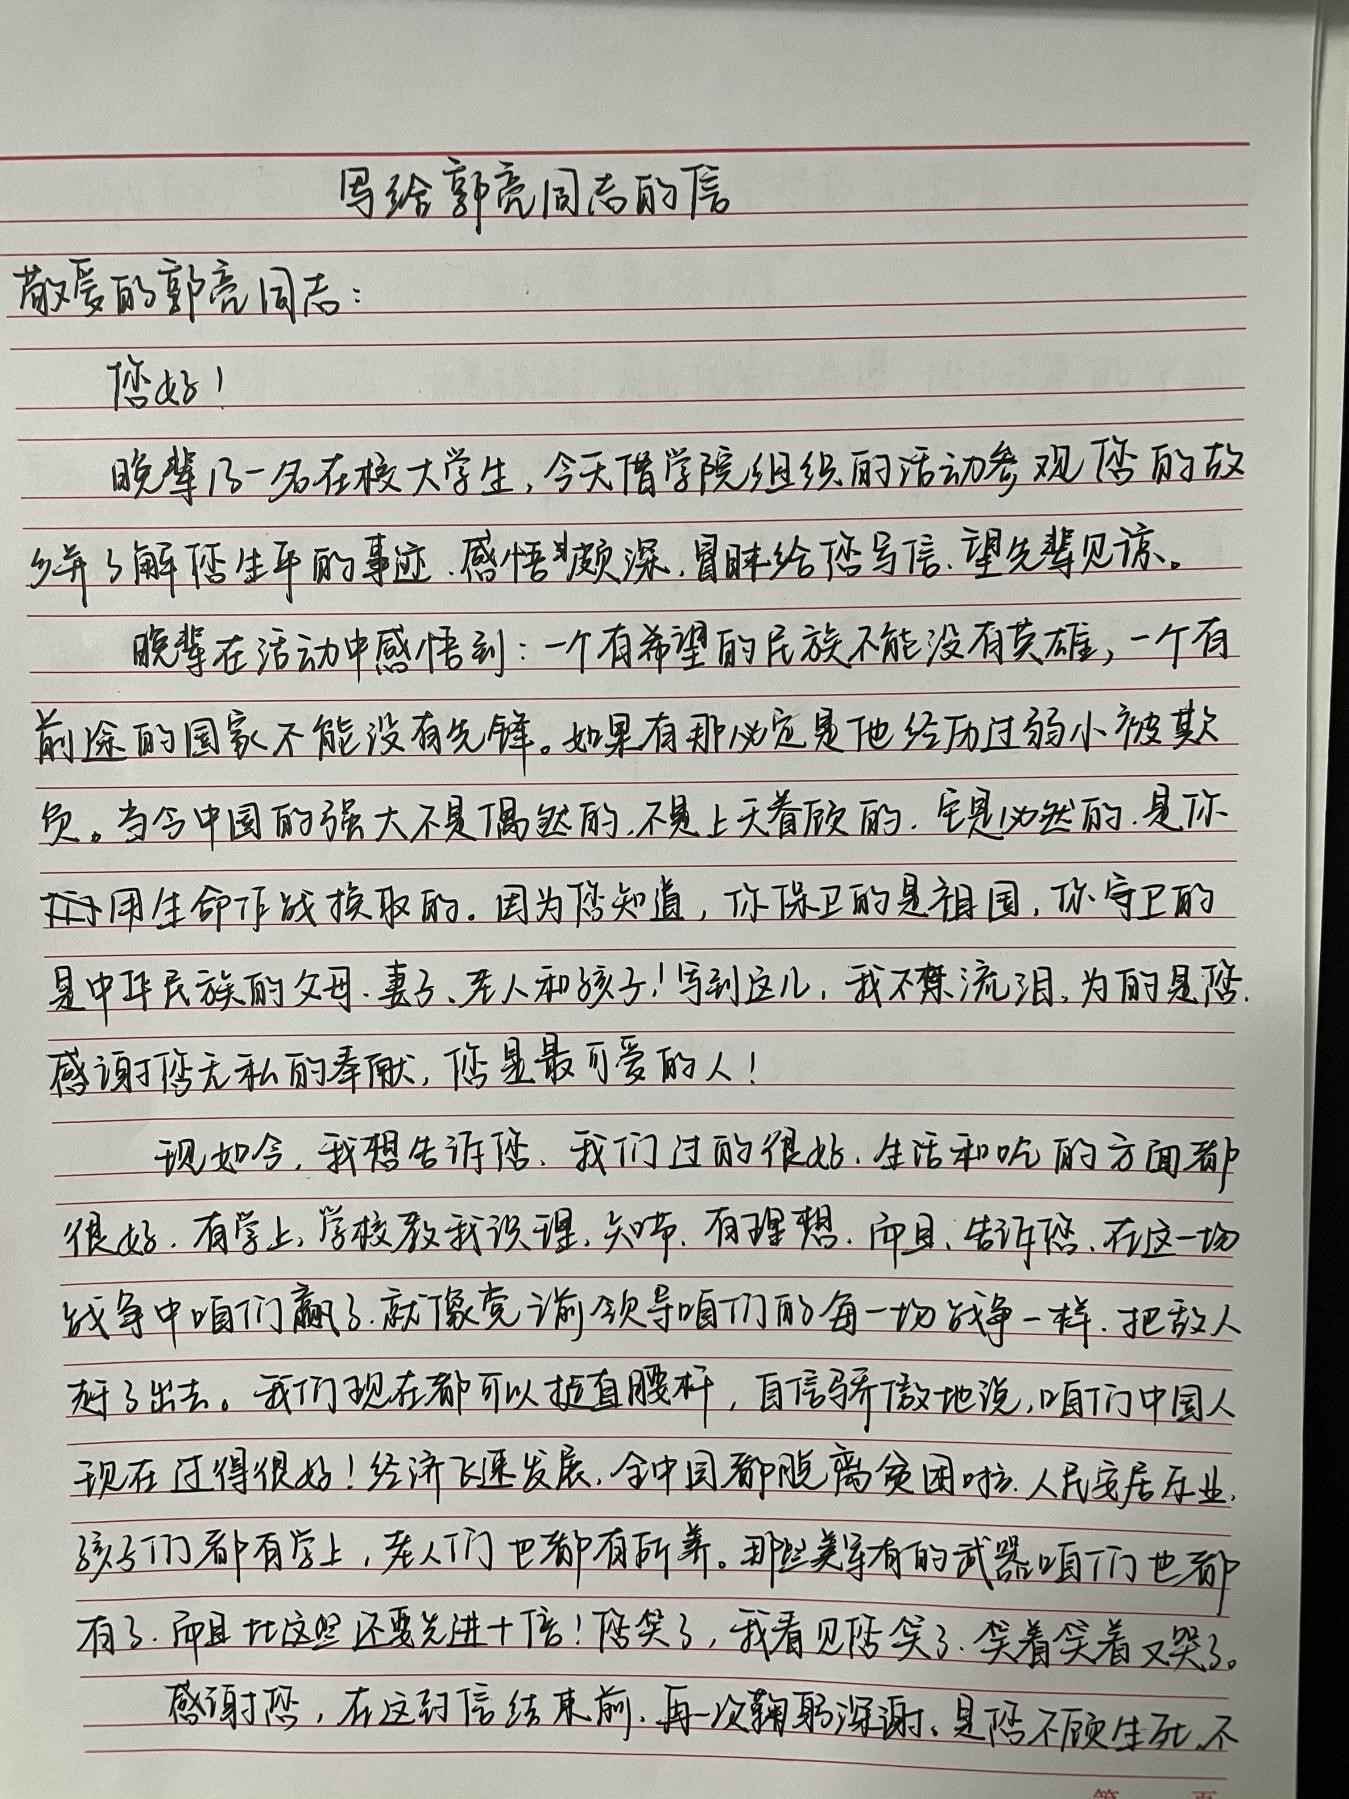 写给郭亮同志的信
敬爱的郭亮同志：
您好！
晚辈乃一名在校大学生，今天借学院组织的活动参观您的故
乡并了解您生平的事迹、感悟颇深，冒昧给您写信、望先辈见谅。
晚辈在活动中感悟到：一个有希望的民族不能没有英雄，一个有
前途的国家不能没有先锋。如果有那必定是他经历过弱小被欺
负。当今中国的强大不是偶然的，不是上天眷顾的，它是必然的，是你
用生命作战换取的。因为您知道，你保卫的是祖国，你守卫的
是中华民族的父母、妻子、老人和孩子！写到这儿，我不禁流泪，为的是您，
感谢您无私的奉献，您是最可爱的人！
现如今，我想告诉您，我们过的很好，生活和吃的方面都
很好，有学上，学校教我识理，知识，有理想，而且，告诉您，在这一场
战争中咱们赢了，就像党领导咱们的每一场战争一样，把敌人
赶了出去。我们现在都可以挺直腰杆，自信骄傲地说，咱们中国人
现在过得很好！经济飞速发展，全中国都脱离贫困啦，人民安居乐业，
孩子们都有学上，老人们也都有所养。那些美军有的武器咱们也都
有了，而且比这些还要先进十倍！您笑了，我看见您笑了，笑着笑着又哭了。
感谢您，在这封信结束前，再一次鞠躬深谢，是您不顾生死，不
第 页